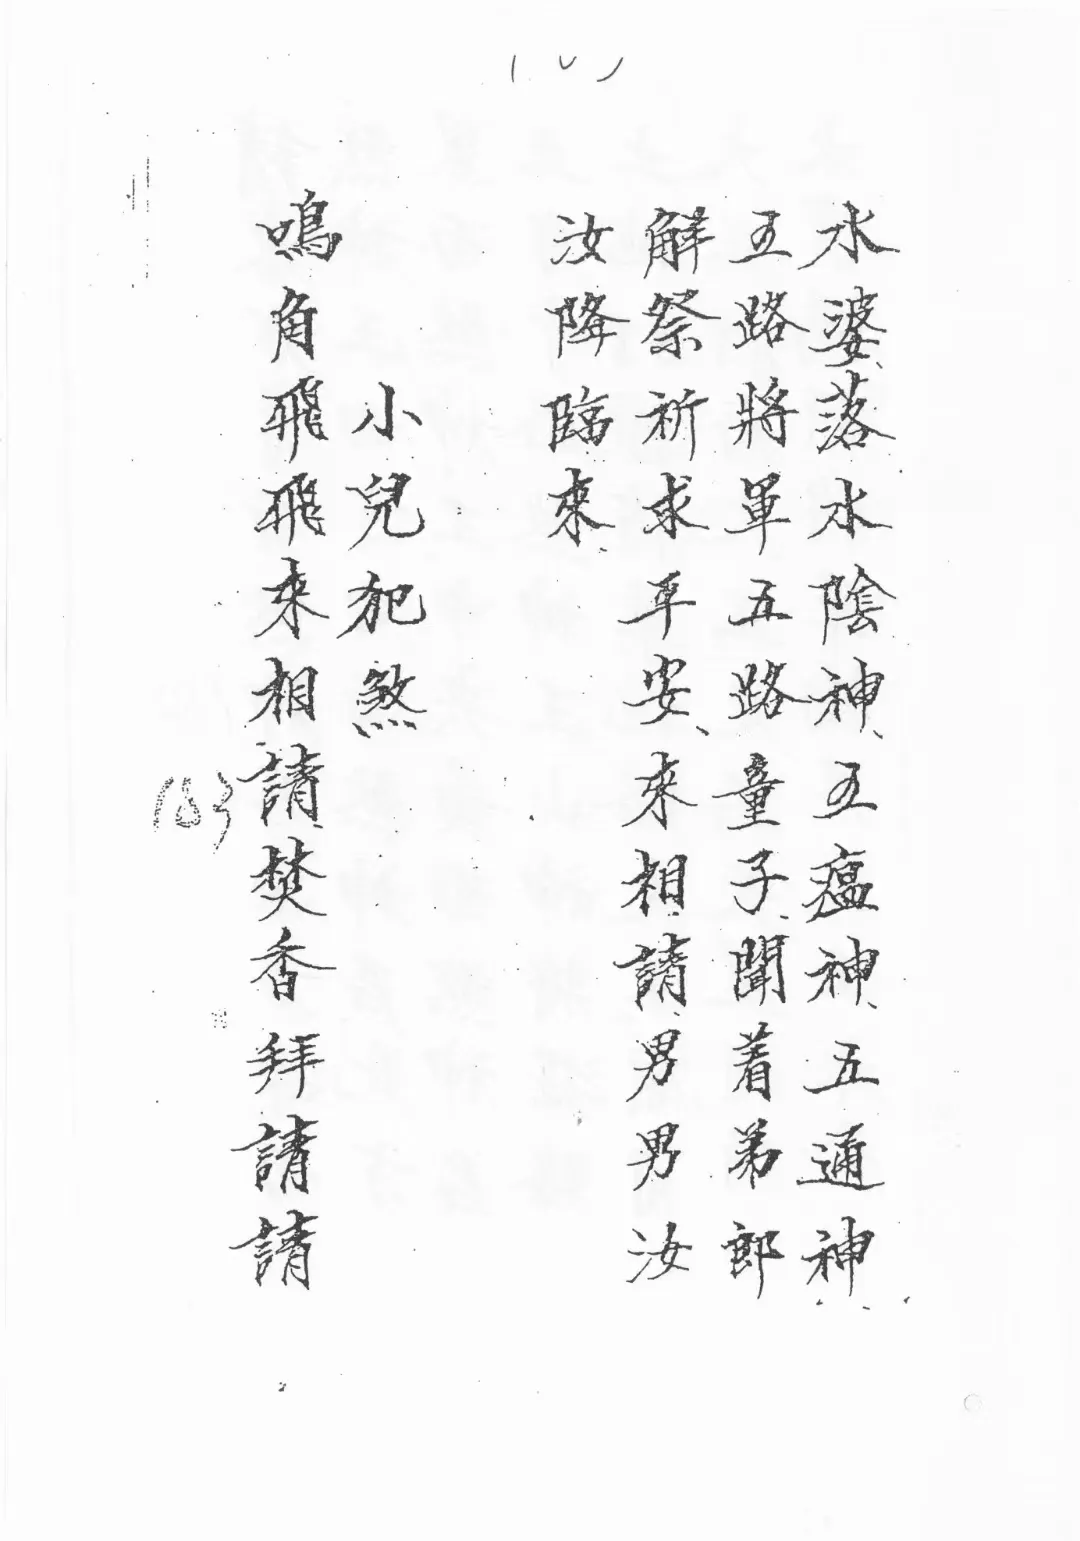 水婆落水陰神、五瘟神、五通神
五路將軍五路童子、聞着弟郎
解祭祈求平安、來相請男男汝
汝降臨來
小兒犯煞
鳴角飛飛來相請焚香拜請請